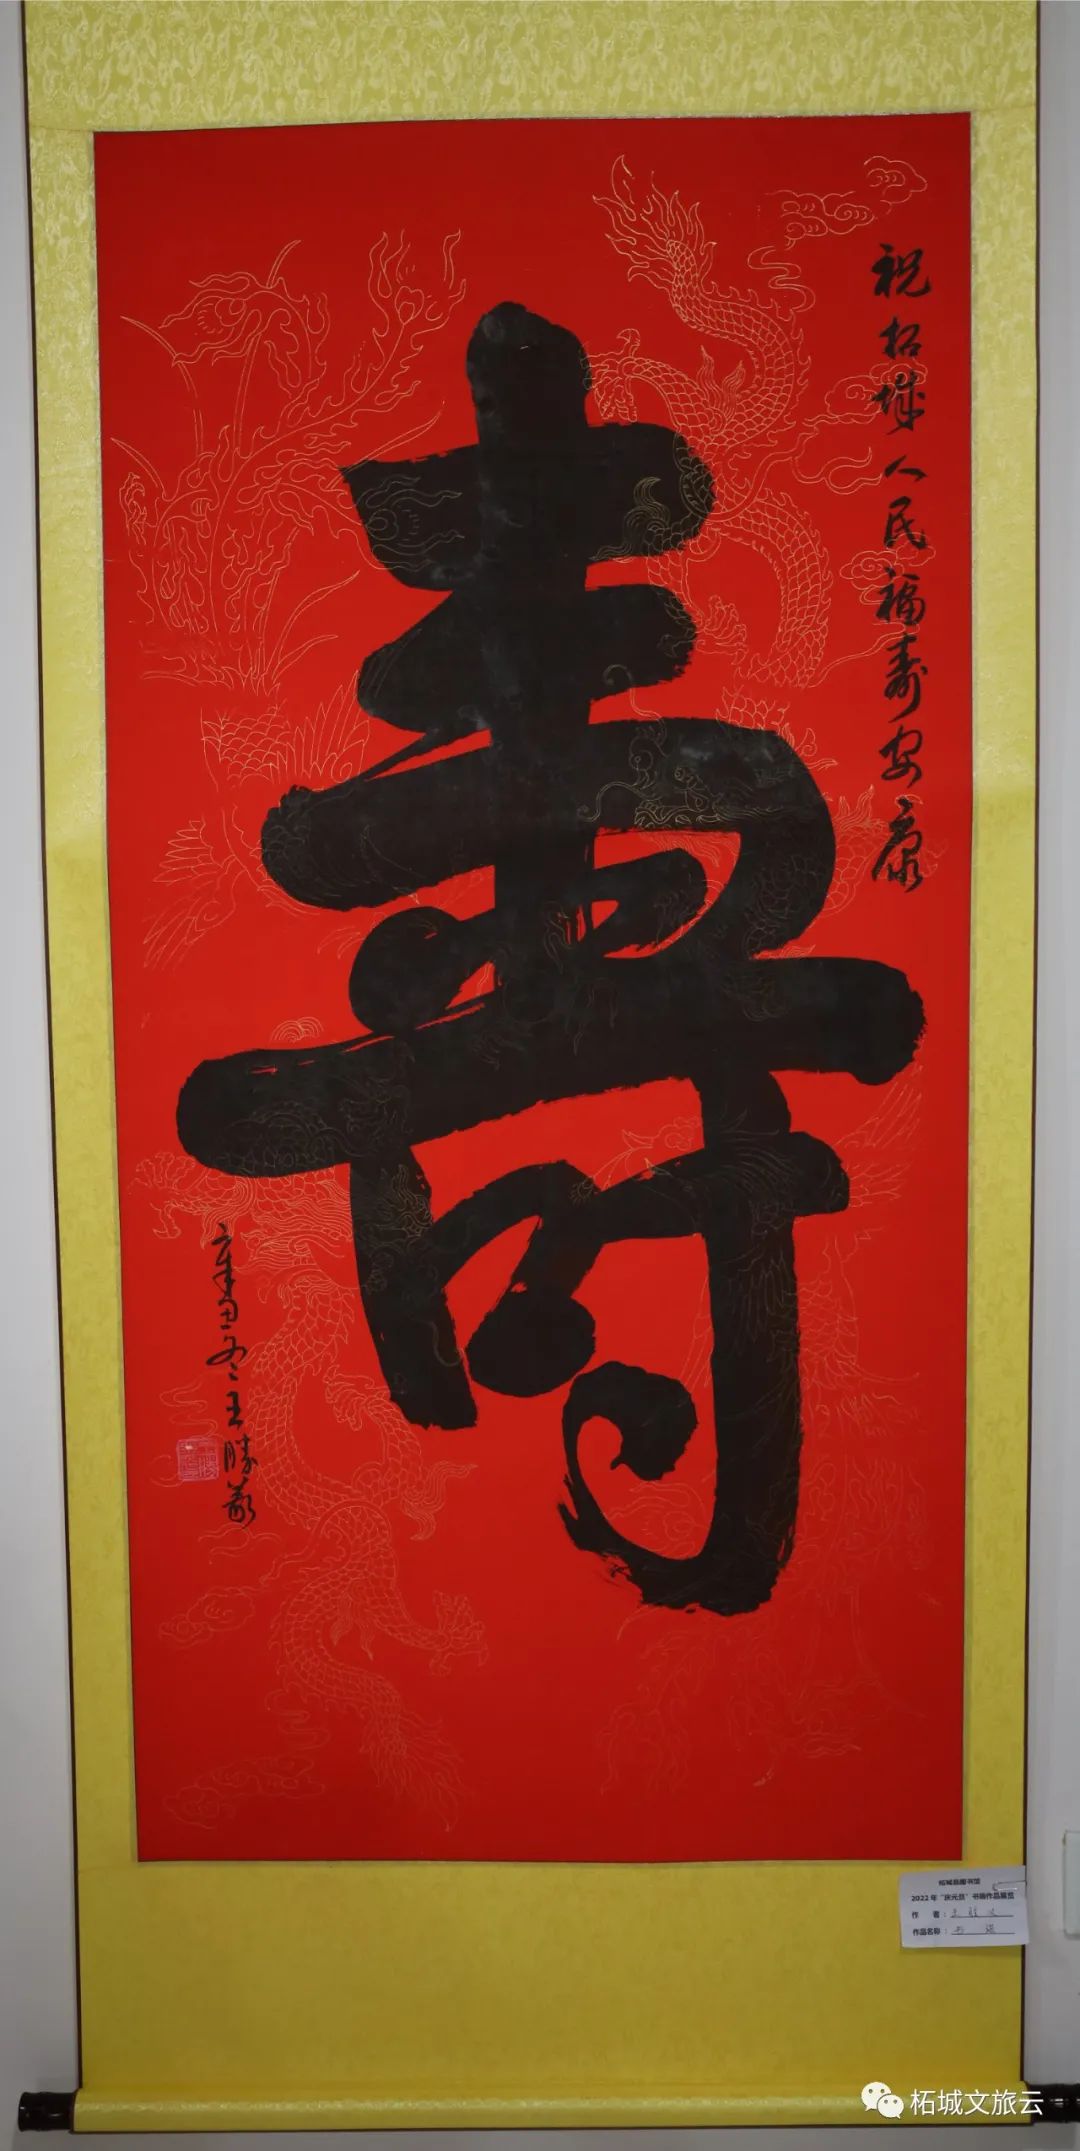 祝柘城人民福寿安康
寿
辛丑冬王勝義
柘城县图书馆
2022年“庆元旦”书画作品展览
作 者：王胜义
作品名称：
柘城文旅云